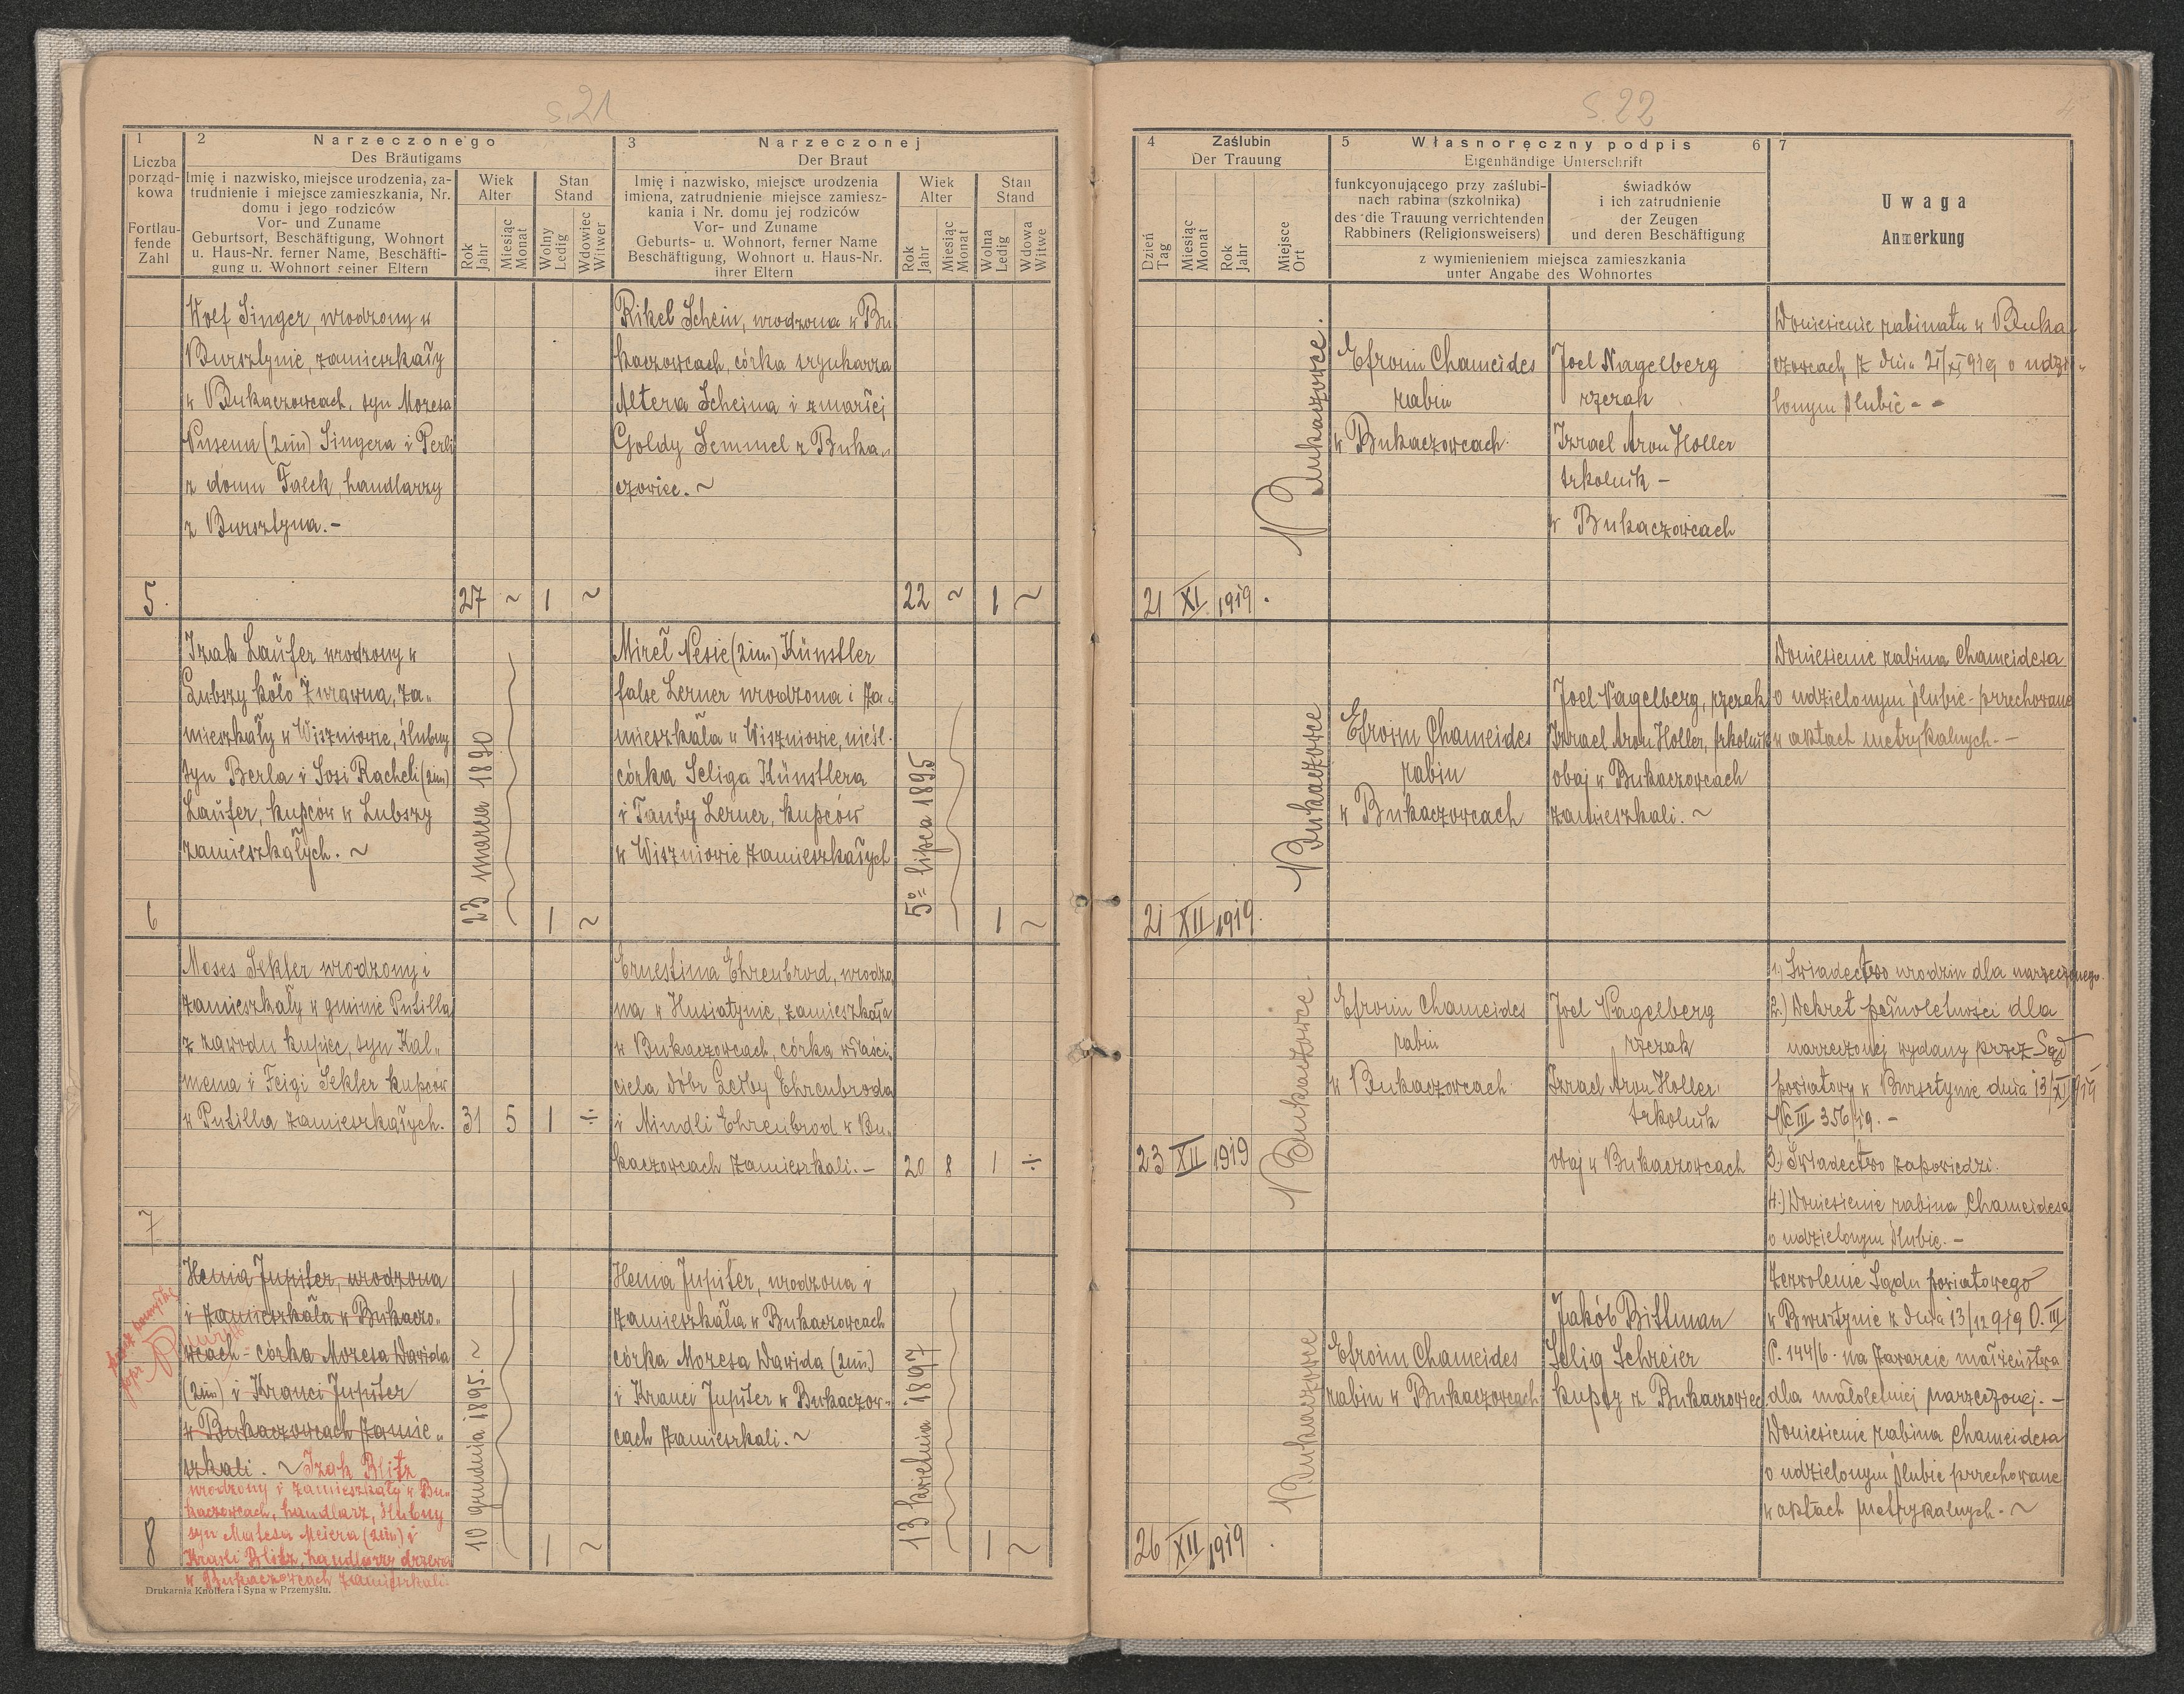 s. 21
1
Liczba
porząd-
kowa
Fortlau-
fende
Zahl
2 Narzeczonego
Des Bräutigams
Imię i nazwisko, miejsce urodzenia, za-
trudnienie i miejsce zamieszkania, Nr.
domu i jego rodziców
Vor- und Zuname
Geburtsort, Beschäftigung, Wohnort
u. Haus-Nr. ferner Name, Beschäfti-
gung u. Wohnort seiner Eltern
Wiek
Alter
Rok
Jahr
Miesiąc
Monat
Stan
Stand
Wolny
Ledig
Wdowiec
Witwer
3 Narzeczonej
Der Braut
Imię i nazwisko, miejsce urodzenia
imiona, zatrudnienie miejsce zamiesz-
kania i Nr. domu jej rodziców
Vor- und Zuname
Geburts- u. Wohnort, ferner Name
Beschäftigung, Wohnort u. Haus-Nr.
ihrer Eltern
Wiek
Alter
Rok
Jahr
Miesiąc
Monat
Stan
Stand
Wolna
Ledig
Wdowa
Witwe
5.
Wolf Singer, urodzony w
Bursztynie, zamieszkały
w Bukaczowcach, syn Mozesa
Nusena (2im) Singera i Perli
z domu Falek, handlarzy
z Bursztyna. -
27 ~ 1 ~
Rikel Schein, urodzona w Bu
kaczowcach, córka szynkarza
Altera Scheina i zmarłej
Goldy Semmel z Buka„
czowiec. ~
22 ~ 1 ~
6
Izak Laufer urodzony w
Lubszy koło Żurawna, za„
mieszkały w Wiszniowie, ślubny
syn Berla i Sosi Racheli (2im)
Laufer, kupców w Lubszy
zamieszkałych. ~
23 marca 1890
1 ~
Mirel Nesie (2im) Künstler
false Lerner urodzona i za-
mieszkała w Wiszniowie, nieśl.
córka Seliga Künstlera
i Tauby Lerner, kupców
w Wiszniowie zamieszkałych
5º lipca 1895
1 ~
7
Moses Sekler urodzony i
zamieszkały w gminie Putilla
z zawodu kupiec, syn Kal„
mena i Feigi Sekler kupców
w Putilla zamieszkałych.
31 5 1 ÷
Ernestina Ehrenbrod, urodzo
na w Husiatynie, zamieszkała
w Bukaczowcach, córka właści
ciela dóbr Leiby Ehrenbroda
i Mindli Ehrenbrod w Bu„
kaczowcach zamieszkali. -
20 8 1 ÷
8
Henia Jupiter, urodzona
i zamieszkała w Bukaczo„
wcach - córka Mozesa Dawida
(2im) i Kranci Jupiter
w Bukaczowcach zamie„
szkali. ~ Izak Blitz
urodzony i zamieszkały w Bu„
kaczowcach, handlarz, ślubny
syn Matesa Meiera (2im) i
Krasli Blitz, handlarzy drzewa
w Bukaczowcach zamieszkali.
10 grudnia 1895. ~
1 ~
Henia Jupiter, urodzona i
zamieszkała w Bukaczowcach
córka Mozesa Dawida (2im)
i Kranci Jupiter w Bukaczow-
cach zamieszkali. ~
13 kwietnia 1897
1 ~
Drukarnia Knollera i Syna w Przemyślu.
s. 22
4 Zaślubin
Der Trauung
Dzień
Tag
Miesiąc
Monat
Rok
Jahr
Miejsce
Ort
5 Własnoręczny podpis 6
Eigenhändige Unterschrift
funkcyonującego przy zaślubi-
nach rabina (szkolnika)
des die Trauung verrichtenden
Rabbiners (Religionsweisers)
świadków
i ich zatrudnienie
der Zeugen
und deren Beschäftigung
z wymienieniem miejsca zamieszkania
unter Angabe des Wohnortes
7
Uwaga
Anmerkung
21 XI 1919.
Bukaczowce.
Efroim Chameides
rabin
w Bukaczowcach
Joel Nagelberg
rzezak
Izrael Aron Holler
szkolnik -
w Bukaczowcach
Doniesienie rabinatu w Buka
czowcach z dnia 21/XI 919 o udzi„
lonym ślubie - -
21 XII 1919.
Bukaczowce
Efroim Chameides
rabin
w Bukaczowcach
Joel Nagelberg, rzezak
Izrael Aron Holler, szkolnik
obaj w Bukaczowcach
zamieszkali. ~
Doniesienie rabina Chameidesa
o udzielonym ślubie - przechowane
w aktach metrykalnych. -
23 XII 1919
Bukaczowce.
Efroim Chameides
rabin
w Bukaczowcach
Joel Nagelberg
rzezak
Izrael Aron Holler
szkolnik
obaj w Bukaczowcach
1.) Świadectwo urodzin dla narzeczonego.
2.) Dekret pełnoletności dla
narzeczonej wydany przez Sąd
powiatowy w Bursztynie dnia 13/XI 919
Nc III 356/19. -
3.) Świadectwo zapowiedzi.
4.) Doniesienie rabina Chameidesa
o udzielonym ślubie. -
26 XII 1919.
Bukaczowce
Efroim Chameides
rabin w Bukaczowcach
Jakób Bittman
Selig Schreier
kupcy z Bukaczowiec
Zezwolenie Sądu powiatowego
w Bursztynie z dnia 13/12 919 O. III
P. 144/6. na zawarcie małżeństwa
dla małoletniej narzeczonej. -
Doniesienie rabina Chameidesa
o udzielonym ślubie przechowane
w aktach metrykalnych. ~